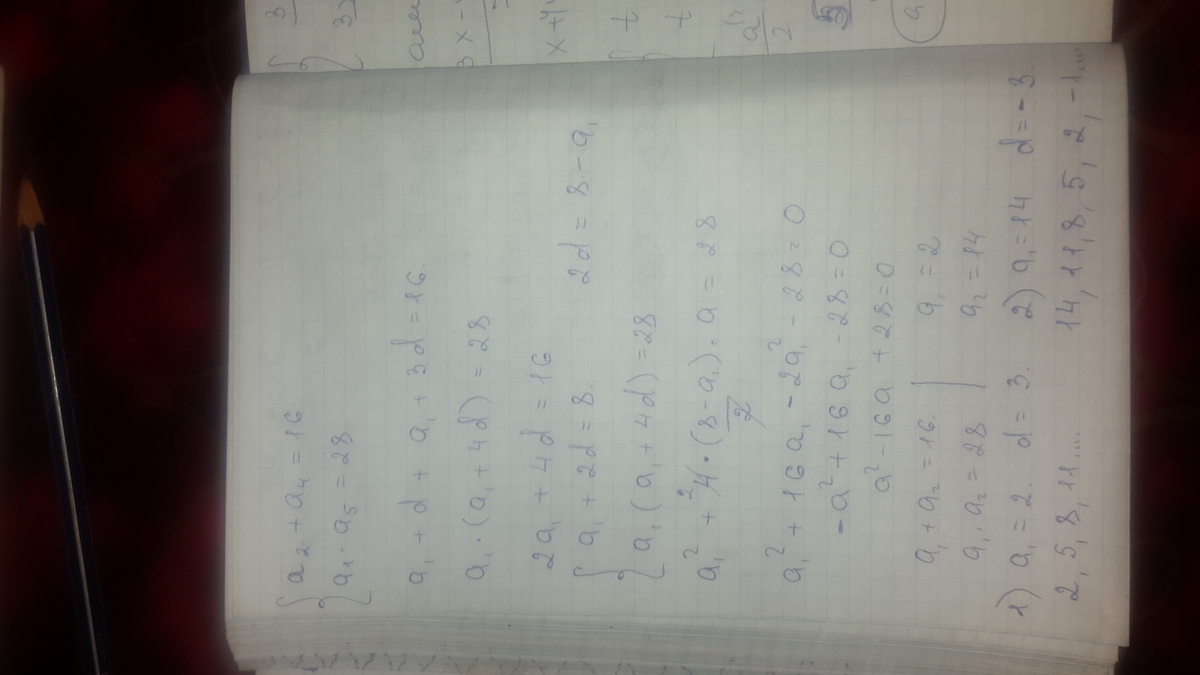 a₂ + a₄ = 16
a₁ · a₅ = 28
a₁ + d + a₁ + 3d = 16.
a₁ · (a₁ + 4d) = 28
2a₁ + 4d = 16
a₁ + 2d = 8. 2d = 8 - a₁
a₁ (a₁ + 4d) = 28
a₁² + 4² · (8 - a₁)/2 · a = 28
a₁² + 16a₁ - 2a₁² - 28 = 0
-a² + 16a₁ - 28 = 0
a² - 16a + 28 = 0
a₁ + a₂ = 16. | a₁ = 2
a₁ · a₂ = 28 | a₂ = 14
1) a₁ = 2. d = 3. 2) a₁ = 14 d = -3.
2, 5, 8, 11... 14, 11, 8, 5, 2, -1...
3
3x -
x + y
t
t
a
2
a